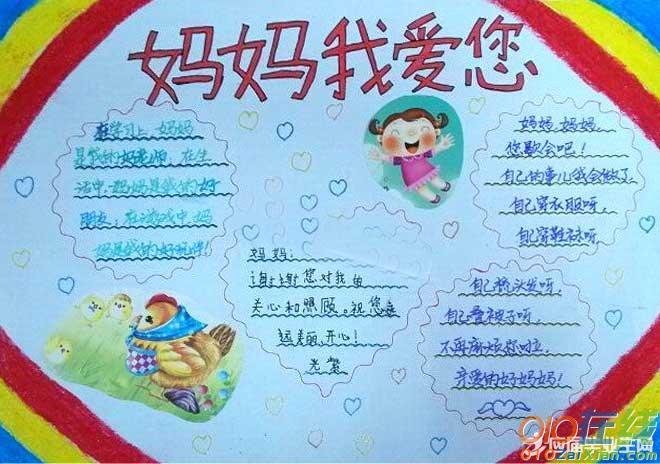 妈妈我爱您
在学习上,妈妈
是我的好老师,在生
活中,妈妈是我的好
朋友,在游戏中,妈
妈是我的好玩伴!
妈妈:
谢谢您对我的
关心和照顾。祝您永
远美丽、开心!
妈妈,妈妈,
您歇会吧!
自己的事儿我会做了,
自己穿衣服呀,
自己穿鞋袜呀,
自己梳头发呀,
自己叠被子呀,
不再麻烦您啦
亲爱的好妈妈!
应届毕业生网
010在线
010zaixian.com